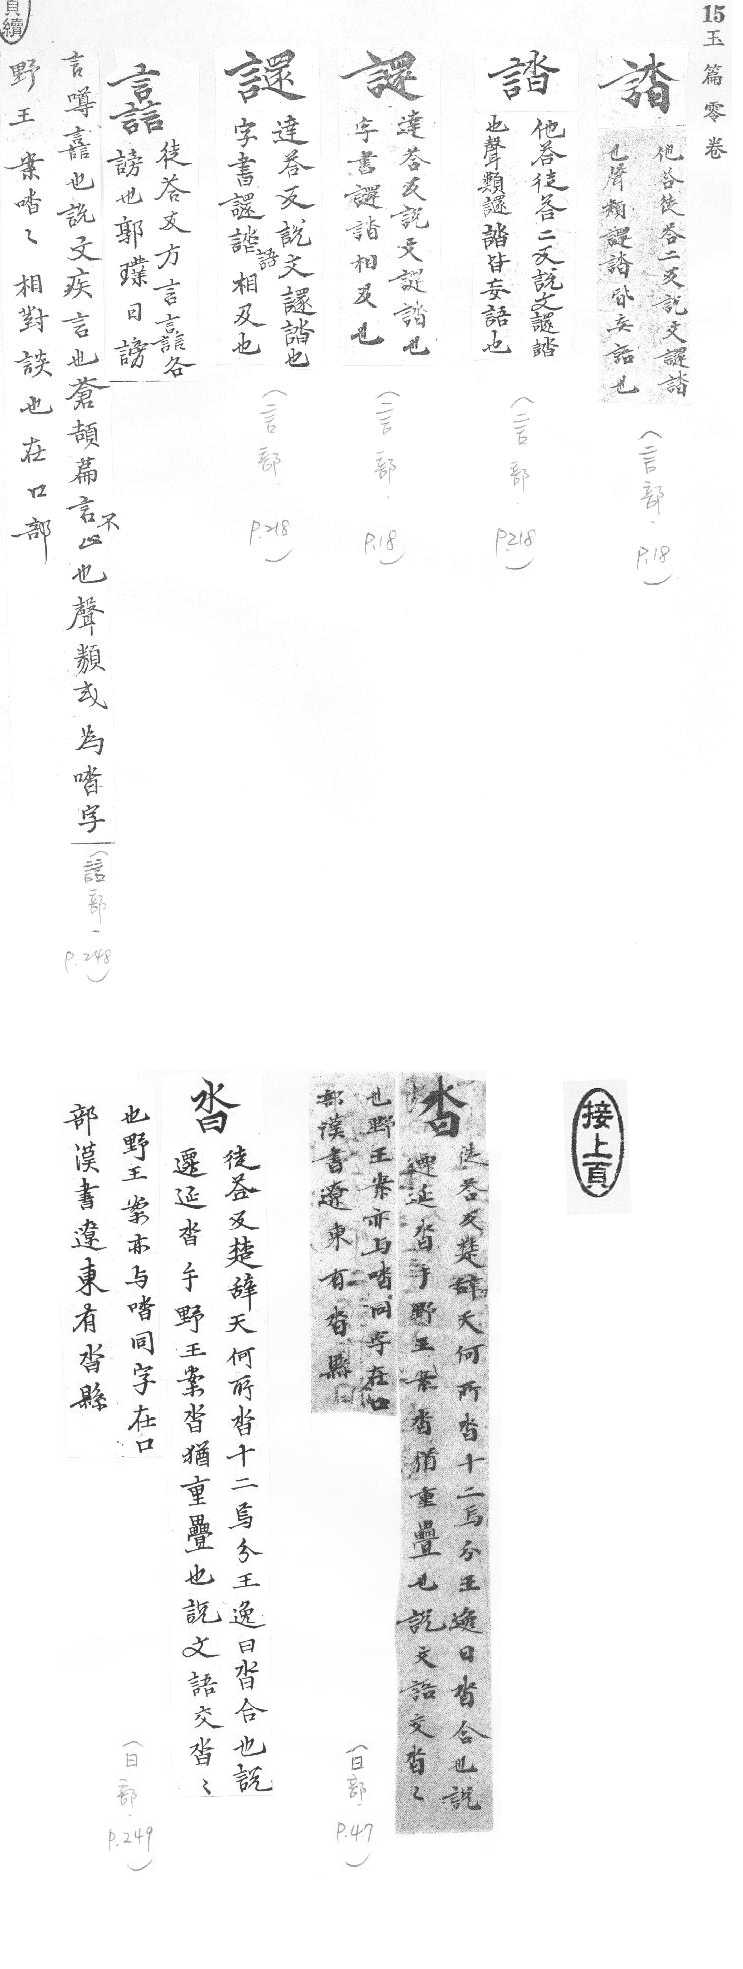 15 玉篇零卷
誻
他荅徒荅二反説文謎誻
也聲類謎誻皆妄語也
(言部.P.18)
誻
他荅徒荅二反説文謎誻
也聲類謎誻皆妄語也
(言部.P.218)
達荅反説文誻也
字書誻相反也
(言部.P.18)
達荅反説文誻也
字書誻語相及也
(言部.P.218)
徒荅反方言各
謗也郭璞曰謗
言噂嚞也説文疾言也蒼頡篇言不止也聲類或為嗒字
(誩部.P.248)
野王案喈〻相對談也在口部
頁續
接上頁
沓
徒荅反楚辭天何所沓十二焉分王逸曰沓合也説
遝延沓乎野王案沓猶重疊也説文語交沓〻
也野王案亦与喈同字在口
部漢書遼東有沓縣
(曰部.P.47)
沓
徒荅反楚辭天何所沓十二焉分王逸曰沓合也説
遝延沓乎野王案沓猶重疊也説文語交沓〻
也野王案亦与喈同字在口
部漢書遼東有沓縣
(曰部.P.249)